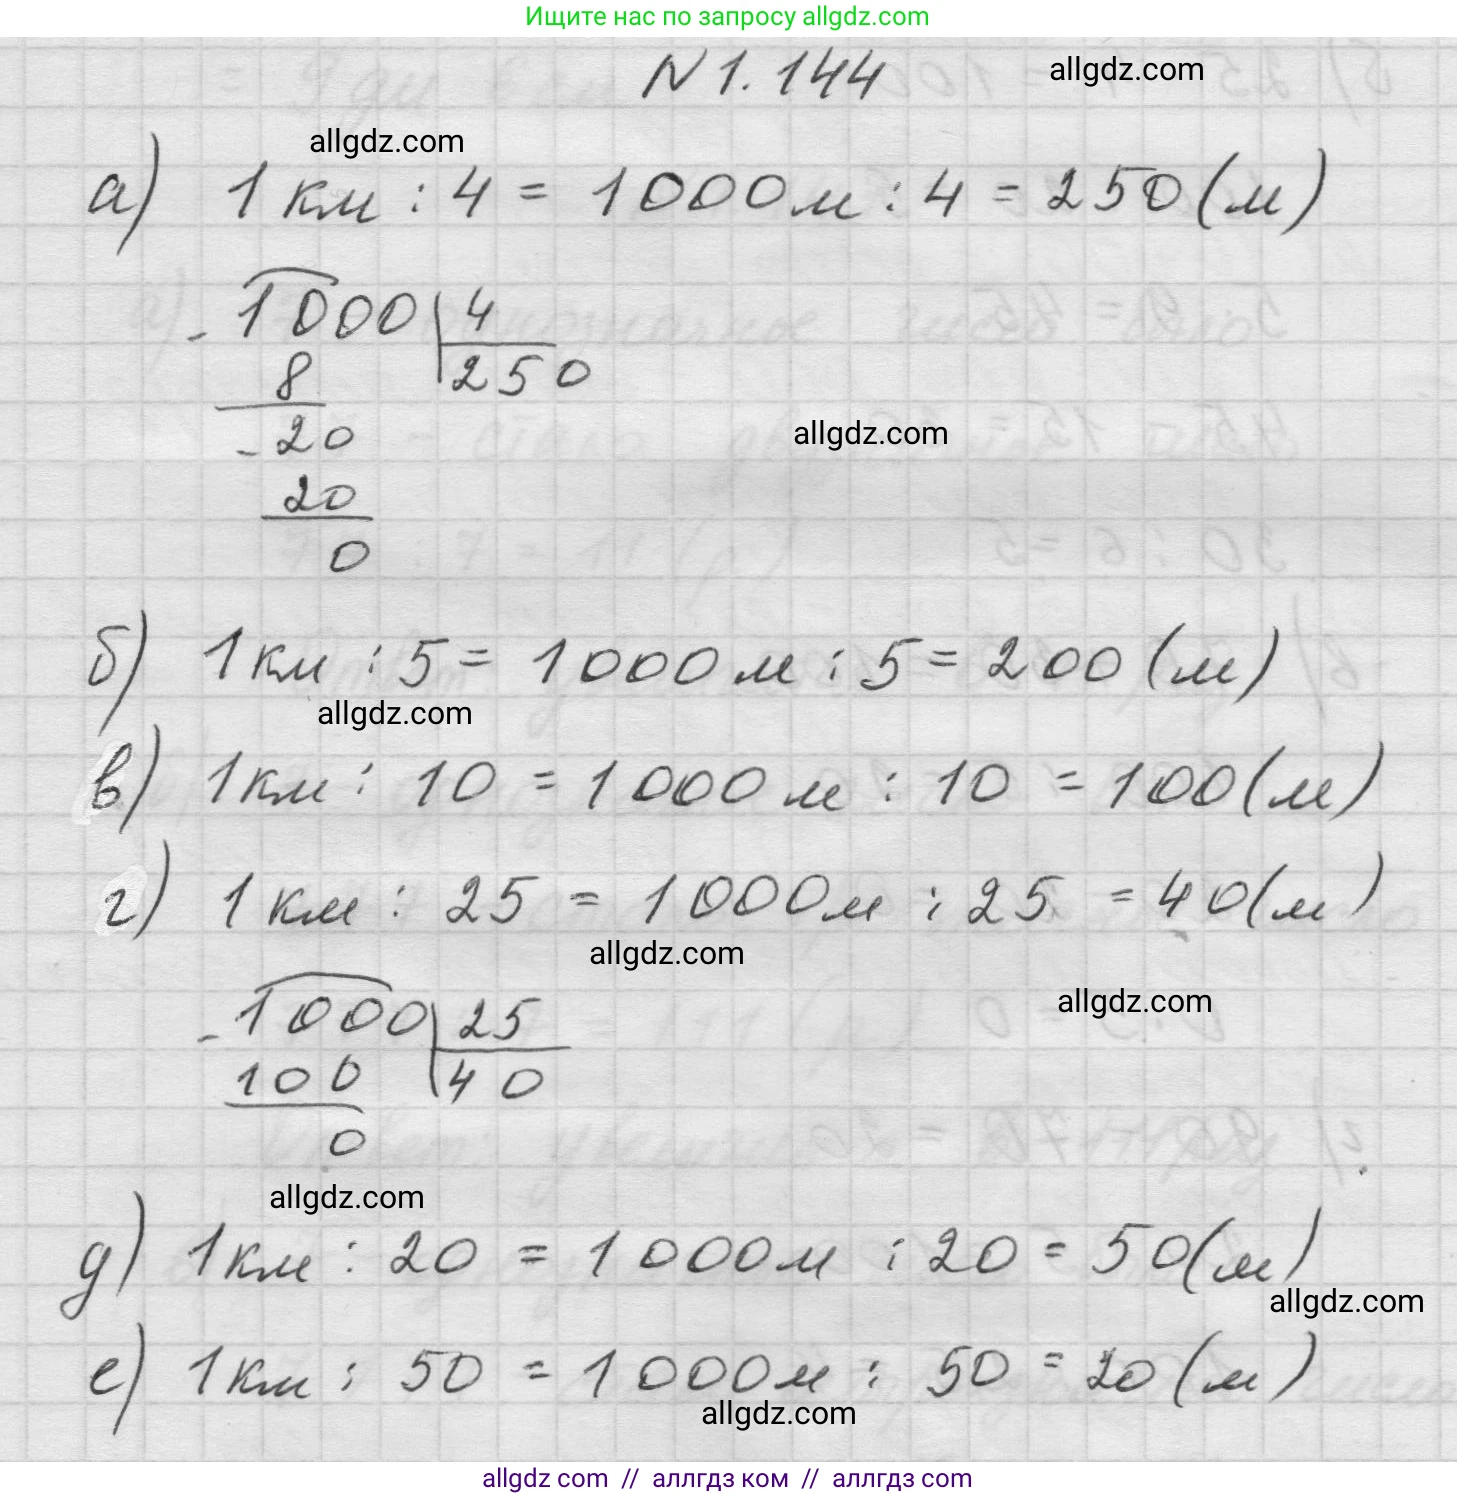 Ищите нас по запросу allgdz.com
N 1.144 allgdz.com
allgdz.com
а) 1 км : 4 = 1000 м : 4 = 250 (м)
- 1000 4
8 250
- 20
allgdz.com
20
0
б) 1 км : 5 = 1000 м : 5 = 200 (м)
allgdz.com
в) 1 км : 10 = 1000 м : 10 = 100 (м)
г) 1 км : 25 = 1000 м : 25 = 40 (м)
allgdz.com
allgdz.com
- 1000 25
100 40
0
allgdz.com
д) 1 км : 20 = 1000 м : 20 = 50 (м)
allgdz.com
е) 1 км : 50 = 1000 м : 50 = 20 (м)
allgdz.com
allgdz com // аллгдз ком // аллгдз com